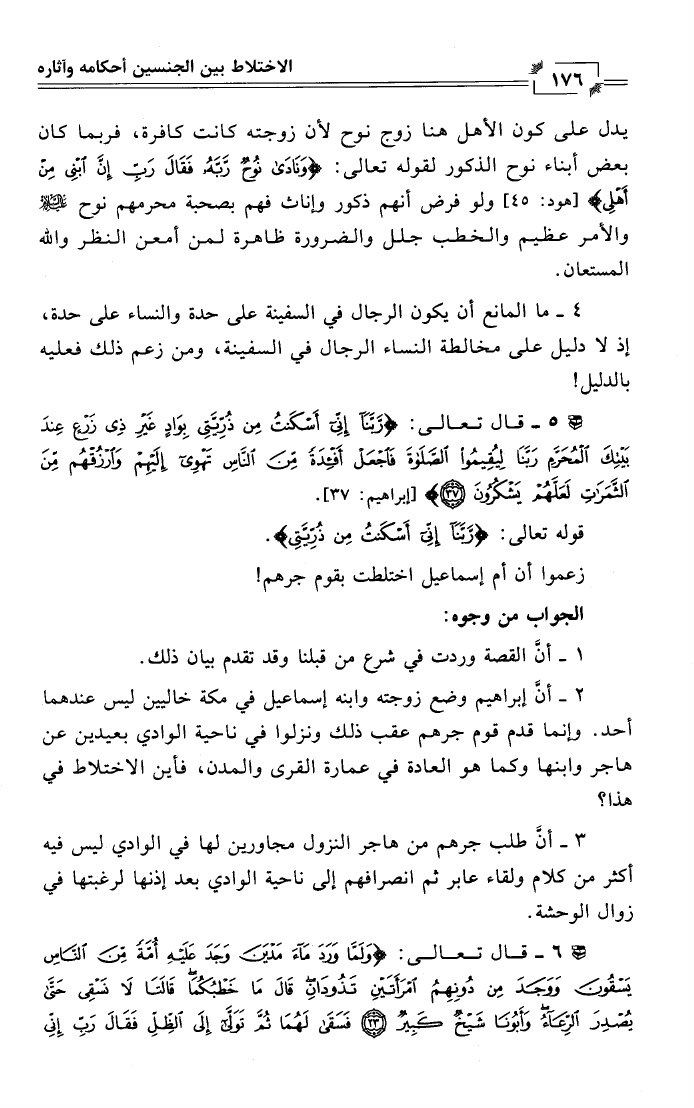 الاختلاط بين الجنسين أحكامه وآثاره
١٧٦
يدل على كون الأهل هنا زوج نوح لأن زوجته كانت كافرة، فربما كان
بعض أبناء نوح الذكور لقوله تعالى: ﴿وَنَادَىٰ نُوحٌ رَّبَّهُۥ فَقَالَ رَبِّ إِنَّ ٱبْنِى مِنْ
أَهْلِى﴾ [هود: ٤٥] ولو فرض أنهم ذكور وإناث فهم بصحبة محرمهم نوح ﷺ
والأمر عظيم والخطب جلل والضرورة ظاهرة لمن أمعن النظر والله
المستعان.
٤ ـ ما المانع أن يكون الرجال في السفينة على حدة والنساء على حدة،
إذ لا دليل على مخالطة النساء الرجال في السفينة، ومن زعم ذلك فعليه
بالدليل!
٥ ـ قال تعالى: ﴿رَّبَّنَآ إِنِّىٓ أَسْكَنتُ مِن ذُرِّيَّتِى بِوَادٍ غَيْرِ ذِى زَرْعٍ عِندَ
بَيْتِكَ ٱلْمُحَرَّمِ رَبَّنَا لِيُقِيمُوا۟ ٱلصَّلَوٰةَ فَٱجْعَلْ أَفْـِٔدَةً مِّنَ ٱلنَّاسِ تَهْوِىٓ إِلَيْهِمْ وَٱرْزُقْهُم مِّنَ
ٱلثَّمَرَٰتِ لَعَلَّهُمْ يَشْكُرُونَ ٣٧﴾ [إبراهيم: ٣٧].
قوله تعالى: ﴿رَّبَّنَآ إِنِّىٓ أَسْكَنتُ مِن ذُرِّيَّتِى﴾.
زعموا أن أم إسماعيل اختلطت بقوم جرهم!
الجواب من وجوه:
١ ـ أنَّ القصة وردت في شرع من قبلنا وقد تقدم بيان ذلك.
٢ ـ أنَّ إبراهيم وضع زوجته وابنه إسماعيل في مكة خاليين ليس عندهما
أحد. وإنما قدم قوم جرهم عقب ذلك ونزلوا في ناحية الوادي بعيدين عن
هاجر وابنها وكما هو العادة في عمارة القرى والمدن، فأين الاختلاط في
هذا؟
٣ ـ أنَّ طلب جرهم من هاجر النزول مجاورين لها في الوادي ليس فيه
أكثر من كلام ولقاء عابر ثم انصرافهم إلى ناحية الوادي بعد إذنها لرغبتها في
زوال الوحشة.
٦ ـ قال تعالى: ﴿وَلَمَّا وَرَدَ مَآءَ مَدْيَنَ وَجَدَ عَلَيْهِ أُمَّةً مِّنَ ٱلنَّاسِ
يَسْقُونَ وَوَجَدَ مِن دُونِهِمُ ٱمْرَأَتَيْنِ تَذُودَانِ ۖ قَالَ مَا خَطْبُكُمَا ۖ قَالَتَا لَا نَسْقِى حَتَّىٰ
يُصْدِرَ ٱلرِّعَآءُ ۖ وَأَبُونَا شَيْخٌ كَبِيرٌ ٢٣ فَسَقَىٰ لَهُمَا ثُمَّ تَوَلَّىٰٓ إِلَى ٱلظِّلِّ فَقَالَ رَبِّ إِنِّى